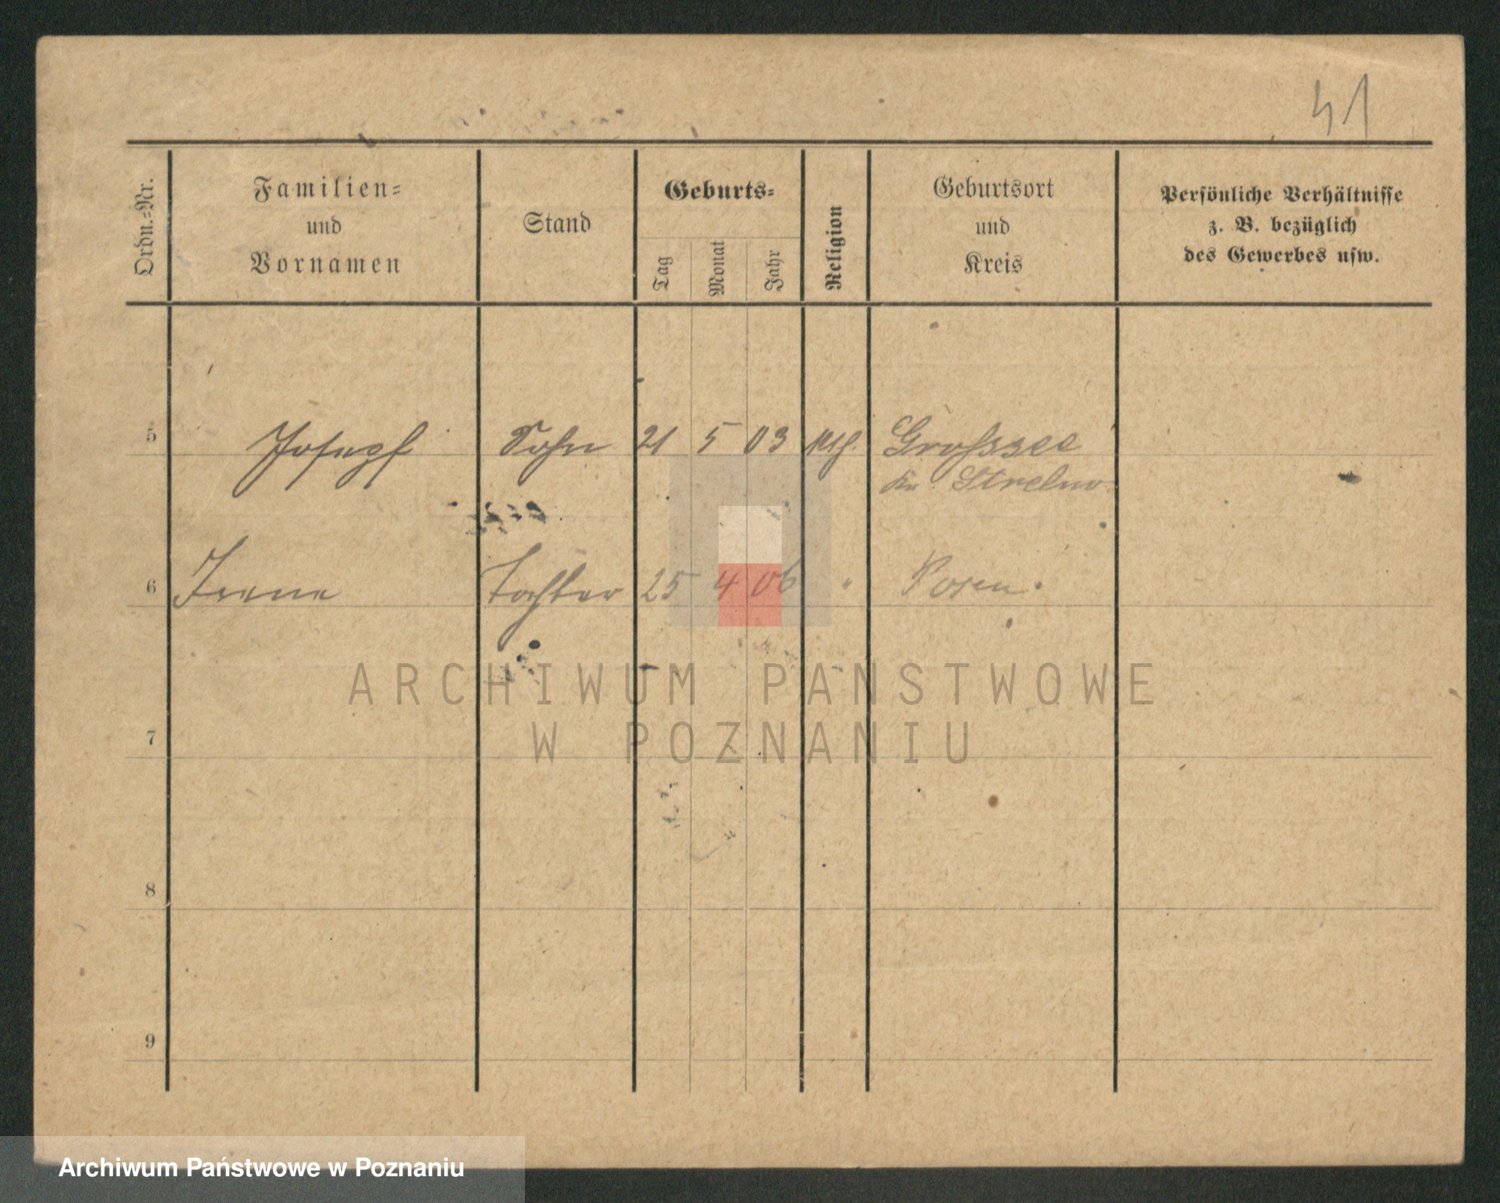 41
Ordn.=Nr.
Familien=
und
Vornamen
Stand
Geburts=
Tag
Monat
Jahr
Religion
Geburtsort
und
Kreis
Persönliche Verhältnisse
z. B. bezüglich
des Gewerbes usw.
5 Josepf Sohn 21 5 03 kth. Grofssee
Kr. Strelno
6 Irene Tochter 25 4 06 " Posen.
ARCHIWUM PAŃSTWOWE
W POZNANIU
7
8
9
Archiwum Państwowe w Poznaniu